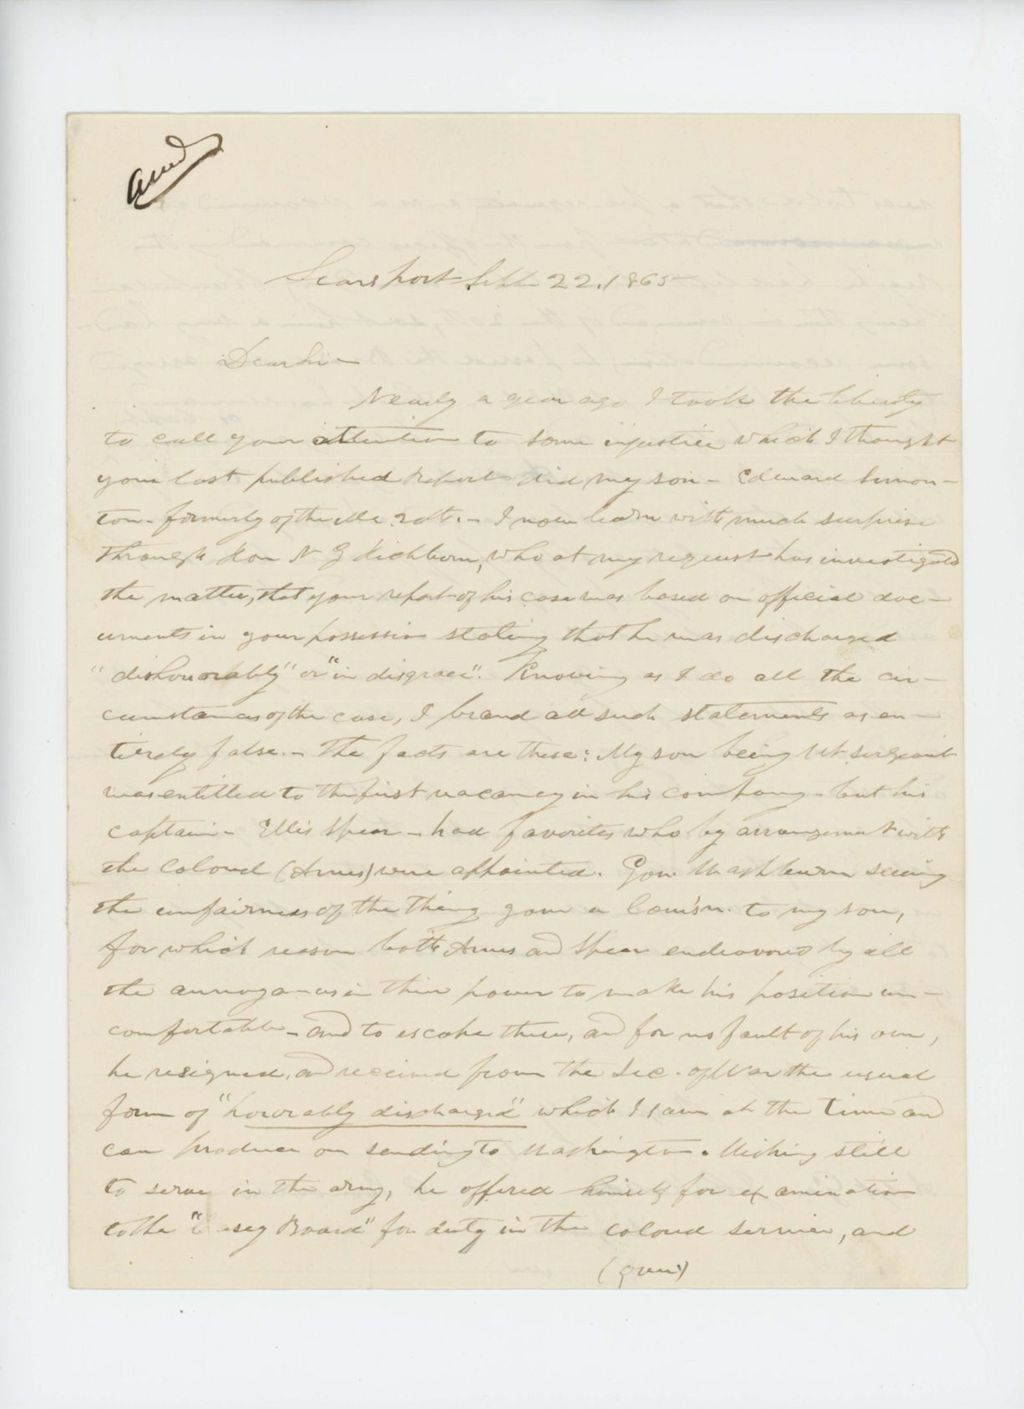 ansd
Searsport Sept 22, 1865
Dear Sir
Nearly a year ago I took the liberty
to call your attention to some injustice which I thought
your last published Report did my son - Edward Simon-
ton - formerly of the Me 20th. - I now learn with much surprise
through Hon N G Hichborn, who at my request has investigated
the matter, that your report of his case was based on official doc-
uments in your possession stating that he was discharged
"dishonorably" or "in disgrace". Knowing as I do all the cir-
cumstances of the case, I brand all such statements as en-
tirely false. - The facts are these: My son being 1st sergeant
was entitled to the first vacancy in his company - but his
captain - Ellis Spear - had favorites who by arrangement with
the Colonel (Ames) were appointed. Gov. Washburn seeing
the unfairness of the thing gave a Com'sn. to my son,
for which reason both Ames and Spear endeavored by all
the annoyances in their power to make his position un-
comfortable - and to escape these, and for no fault of his own,
he resigned, and received from the Sec. of War the usual
form of "honorably discharged" which I saw at the time and
can produce on sending to Washington. Wishing still
to serve in the army, he offered himself for examination
to the "Casey Board" for duty in the colored service, and
(over)